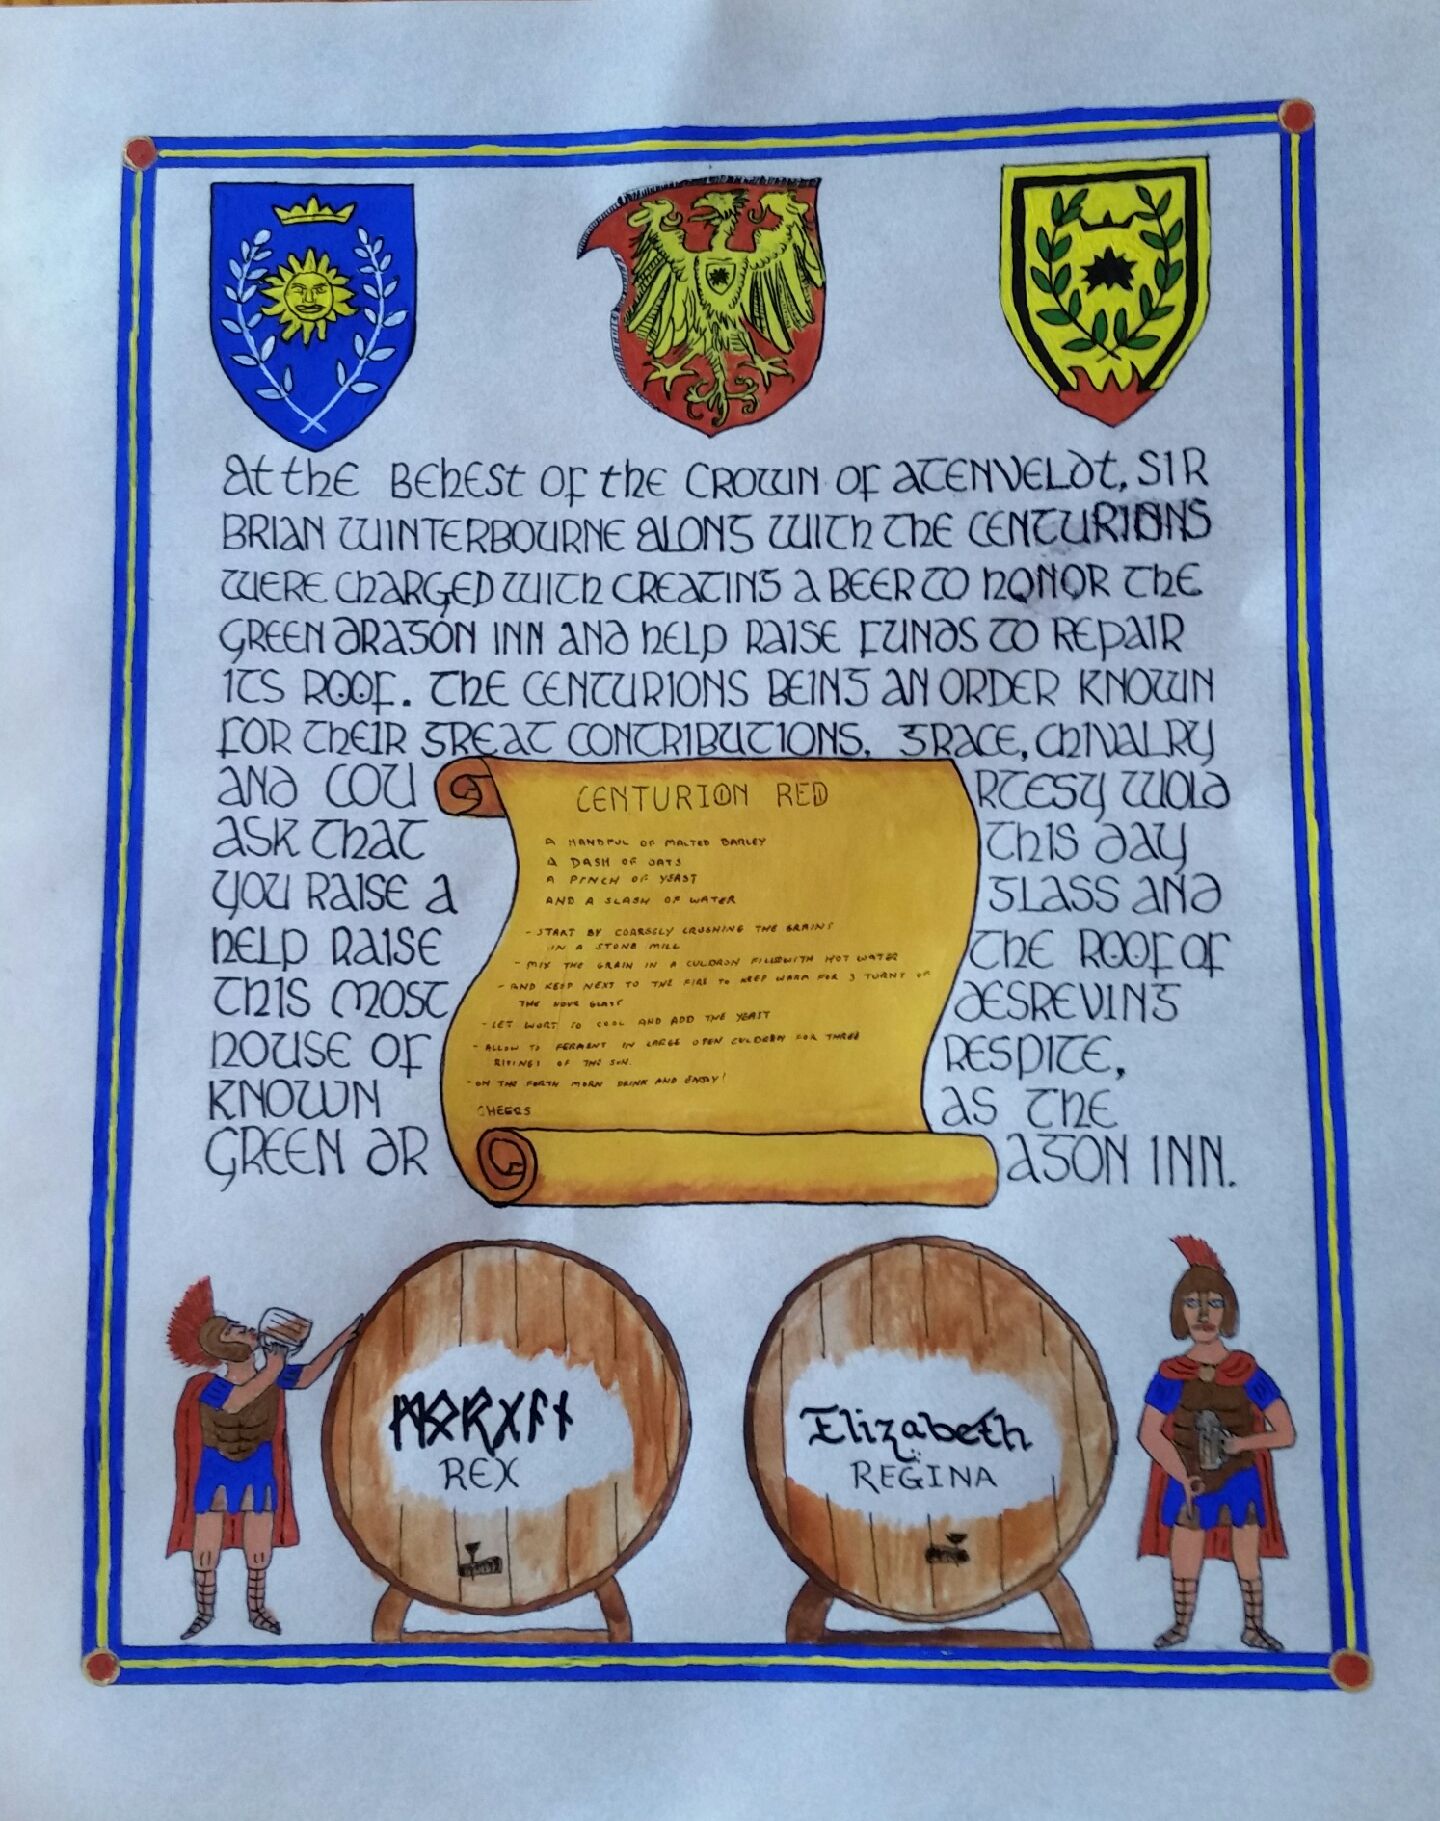 At the Behest of the Crown of Atenveldt, Sir
Brian Winterbourne along with the Centurions
were charged with creating a beer to honor the
Green Dragon Inn and help raise funds to repair
its roof. The Centurions being an order known
for their great contributions, grace, chivalry
and cou rtesy wold
ask that this day
you raise a glass and
help raise the roof of
this most desreving
house of respite,
known as the
Green Dr agon Inn.
CENTURION RED
A HANDFUL OF MALTED BARLEY
A DASH OF OATS
A PINCH OF YEAST
AND A SLASH OF WATER
- START BY COARSELY CRUSHING THE GRAINS
IN A STONE MILL
- MIX THE GRAIN IN A CULDRON FILLED WITH HOT WATER
- AND KEEP NEXT TO THE FIRE TO KEEP WARM FOR 3 TURNS OF
THE HOUR GLASS
- LET WORT TO COOL AND ADD THE YEAST
- ALLOW TO FERMENT IN LARGE OPEN CULDREN FOR THREE
RISINGS OF THE SUN.
- ON THE FORTH MORN DRINK AND ENJOY!
CHEERS
ᛗᛟᚱᚷᚨᚾ
REX
Elizabeth
REGINA